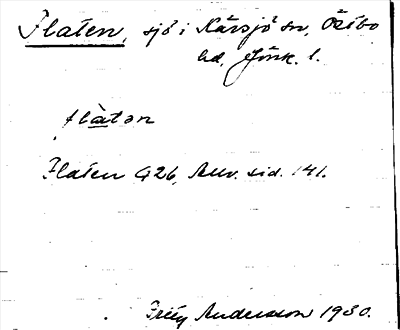 Flaten, sjö i Kärsjö sn, Östbo
hd, Jönk. l.
flàtən
Flaten G26, Anv. sid. 141.
Andersson 1930.